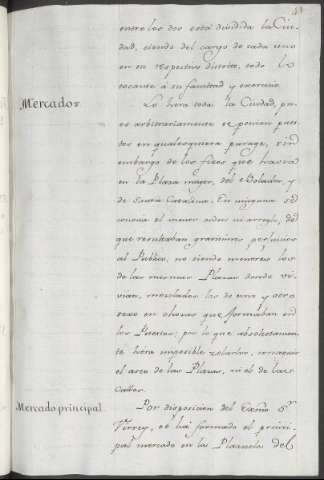 entre los dos está dividida la Ciu-
dad, siendo del cargo de cada uno
en su respectivo distrito, todo lo
tocante à su facultad y exercicio.
Mercados.
Lo hera toda la Ciudad, pues
arbitrariamente se ponian puestos
en qualesquiera parage, sin
embargo de los fixos que havia
en la Plaza mayor, del Bolador, y
de Santa Catalina. En ninguna se
conocia el menor orden ni arreglo, de
que resultaban gravisimos perjuicios
al Publico, no siendo menores los
de las mismas Plazas donde vi-
vian, mezclados los de uno y otro
sexo en chozas que formaban en
los Puestos; por lo que absolutamen-
te hera imposible zelarlos, mantener
el aseo de las Plazas, ni el de las
calles.
Mercado principal.
Por disposicion del Exmo Sr
Virrey, se ha formado el princi-
pal mercado en la Plazuela del